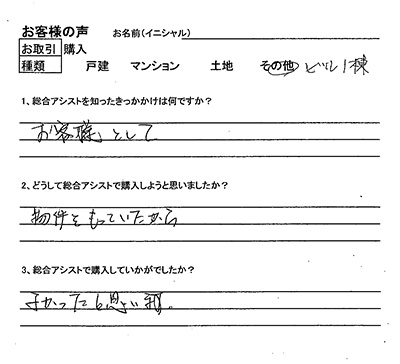 お客様の声 お名前(イニシャル)
お取引 購入
種類 戸建 マンション 土地 その他 ビル1棟
1、総合アシストを知ったきっかけは何ですか?
お客様として
2、どうして総合アシストで購入しようと思いましたか?
物件をもっていたから
3、総合アシストで購入していかがでしたか?
よかったと思い